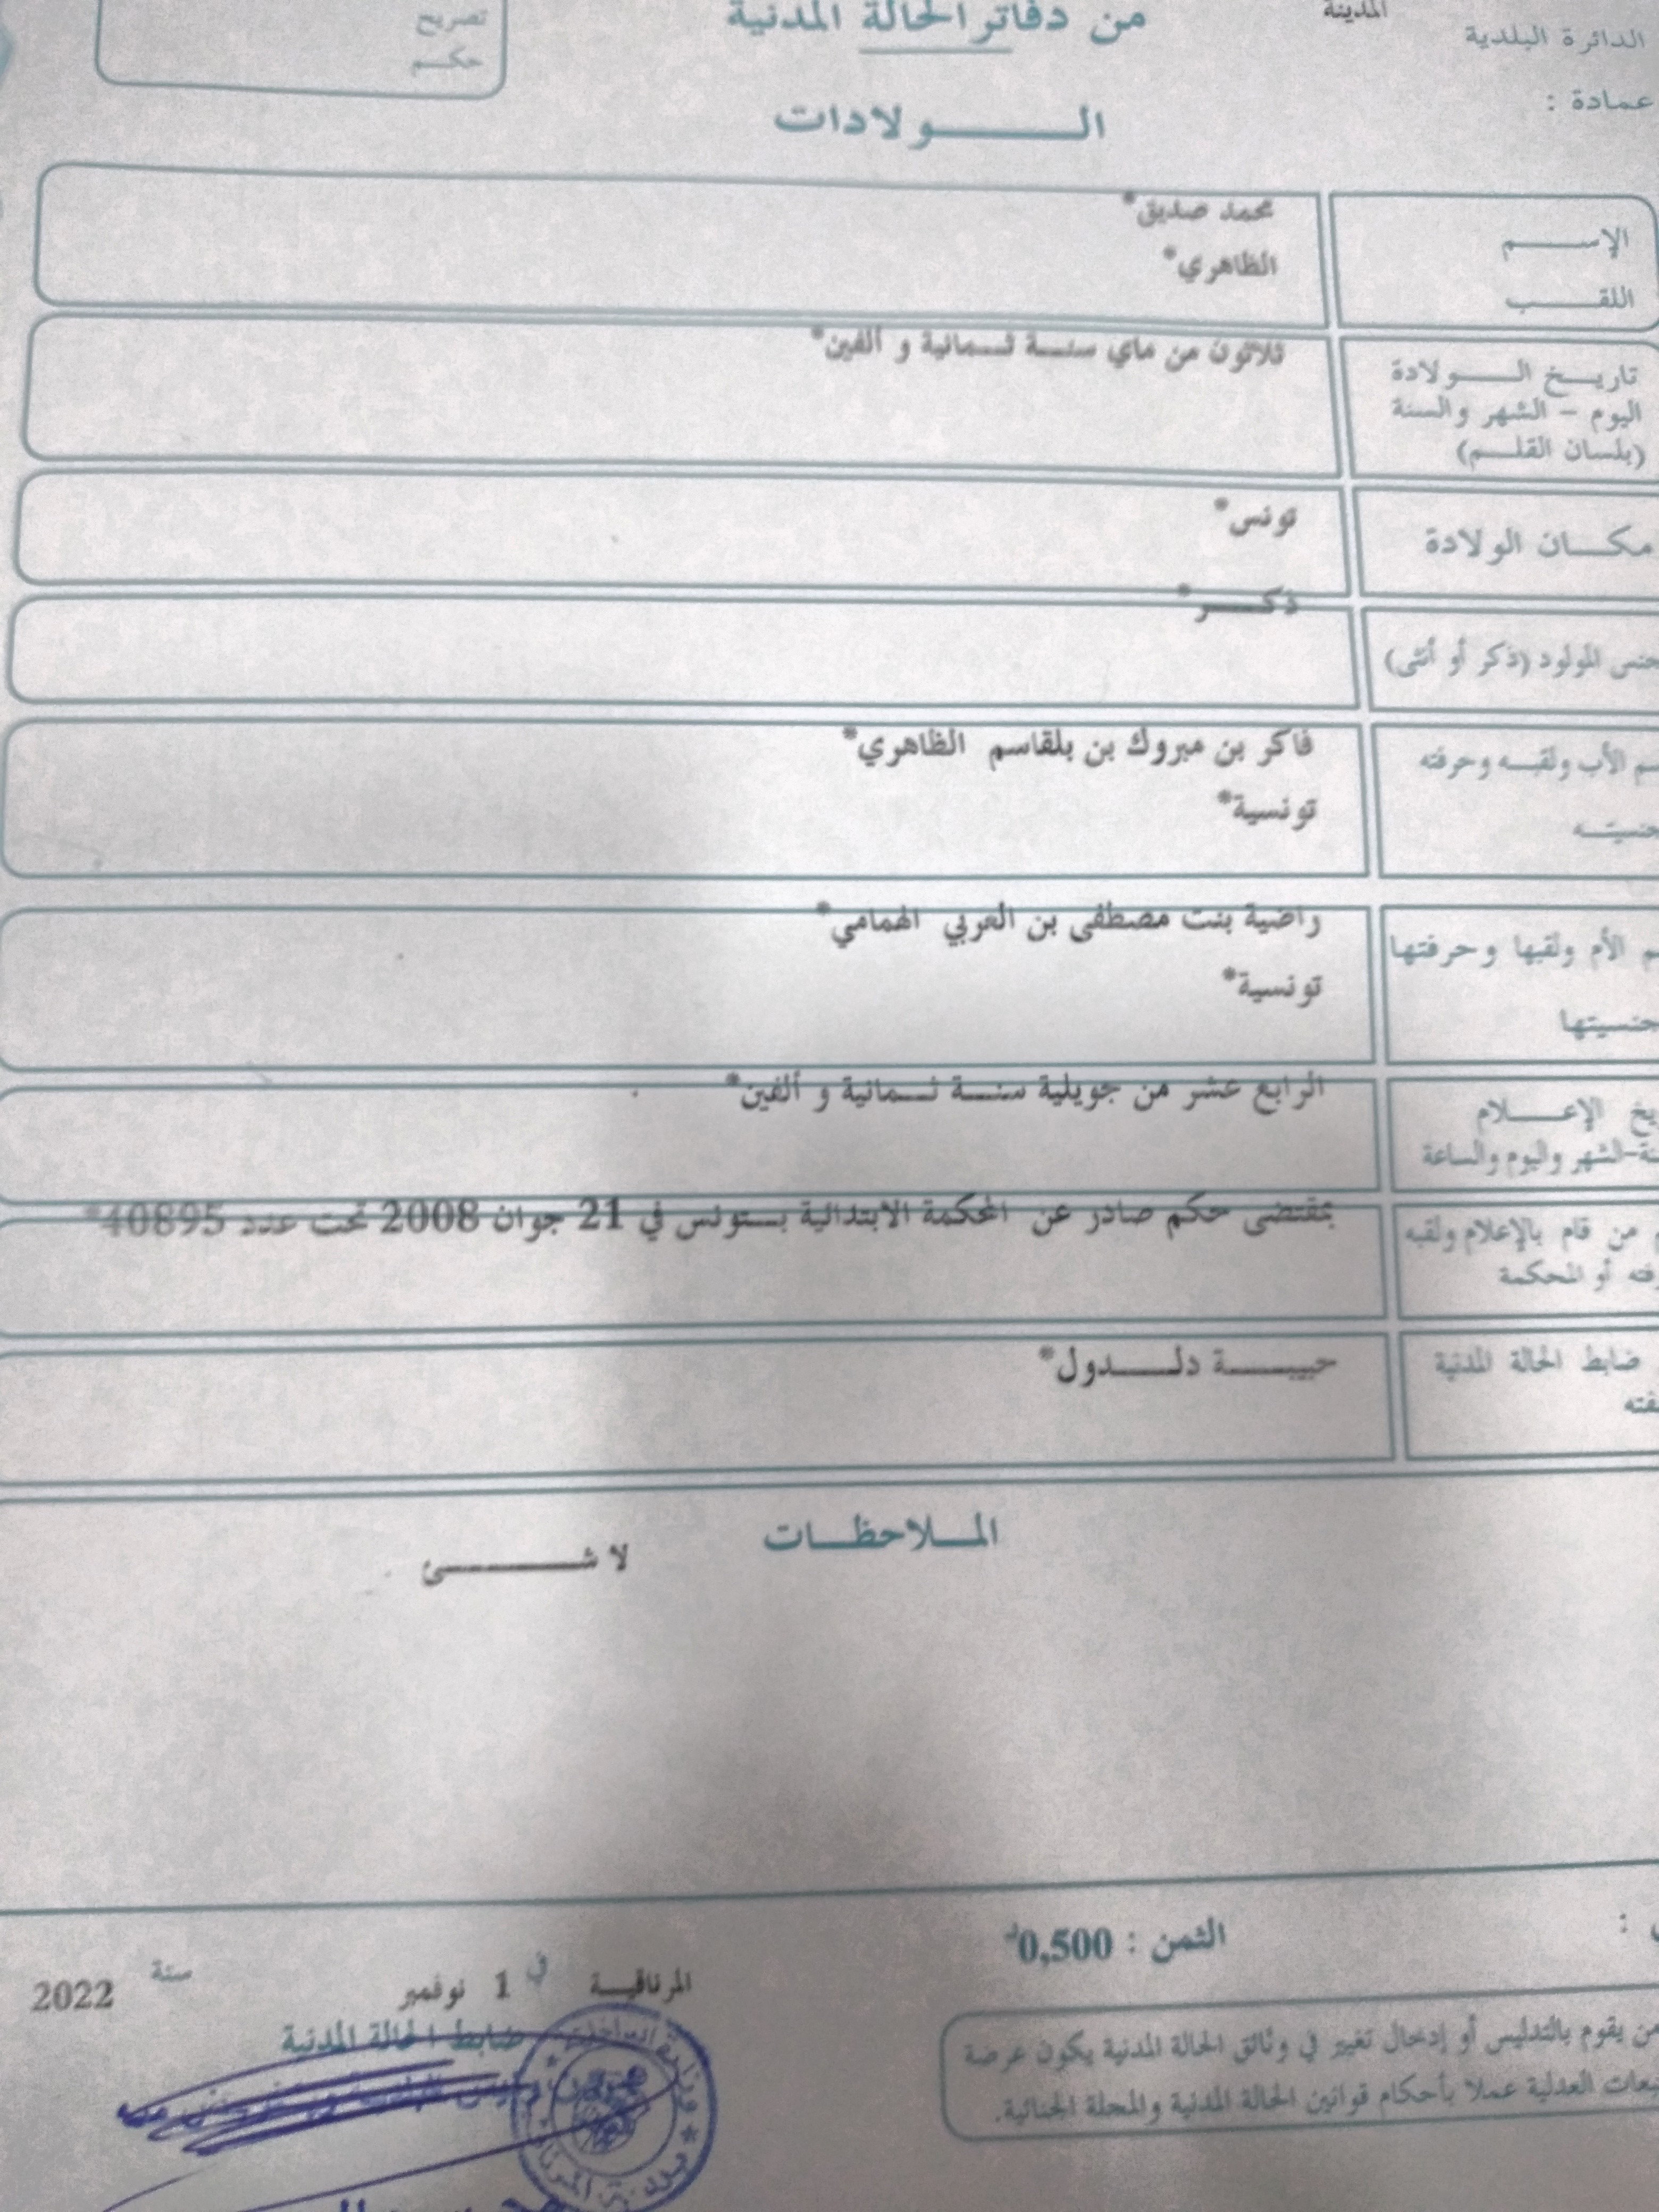 المدينة
الدائرة البلدية
عمادة :
من دفاتر الحالة المدنية
تصريح
حكم
الولادات
الإسم
محمد صديق*
اللقب
الظاهري*
تاريخ الولادة
اليوم - الشهر والسنة
(بلسان القلم)
ثلاثون من ماي سنة ثمانية و ألفين*
مكان الولادة
تونس*
جنس المولود (ذكر أو أنثى)
ذكر*
الأب ولقبه وحرفته
فاكر بن مبروك بن بلقاسم الظاهري*
تونسية*
الأم ولقبها وحرفتها
راضية بنت مصطفى بن العربي الهمامي*
جنسيتها
تونسية*
الإعلام
الشهر واليوم والساعة
الرابع عشر من جويلية سنة ثمانية و ألفين*
من قام بالإعلام ولقبه
أو المحكمة
بمقتضى حكم صادر عن المحكمة الابتدائية بتونس في 21 جوان 2008 تحت عدد 40895*
ضابط الحالة المدنية
حبيبة دلدول*
الملاحظات
لا شئ
الثمن : 0,500د
المرناقية في 1 نوفمبر سنة 2022
ضابط الحالة المدنية
من يقوم بالتدليس أو إدخال تغيير في وثائق الحالة المدنية يكون عرضة
العدلية عملا بأحكام قوانين الحالة المدنية والمجلة الجنائية.